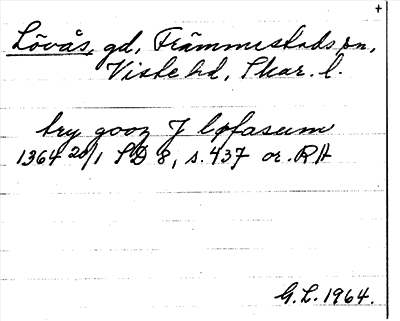 +
Lövås, gd, Främmestads sn,
Viste hd, Skar. l.
try gooz J løfasum
1364 20/1 SD 8, s. 437 or. RA
G.L. 1964.